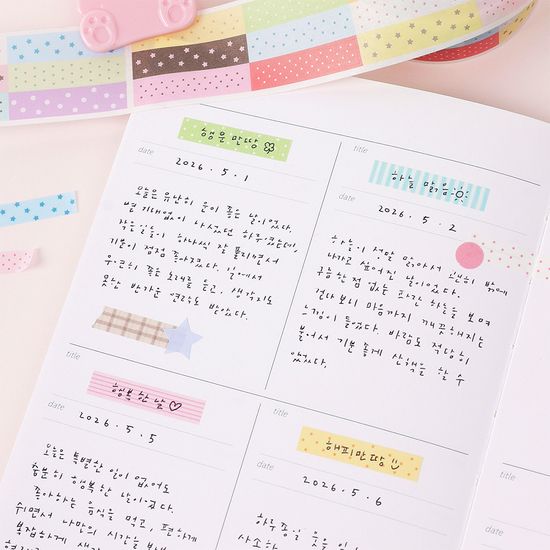 행운 만땅
date
2026 . 5 . 1
오늘은 유난히 운이 좋은 날이었다.
별 기대없이 나섰던 하루였는데,
작은일들이 하나씩 잘 풀리면서
기분이 점점 좋아졌다. 길에서
우연히 좋은 노래를 듣고, 생각지도
못한 반가운 연락도 받았다.
title
하늘 맑음
date
2026 . 5 . 2
하늘이 정말 맑아서 괜히 밖에
나가고 싶어진 날이었다.
구름 한점 없는 파란 하늘을 보며
걷다보니 마음까지 깨끗해지는
느낌이 들었다. 바람도 적당히
불어서 기분 좋게 산책을 할 수
있었다.
title
행복한 날
date
2026 . 5 . 5
오늘은 특별한 일이 없어도
충분히 행복한 날이었다.
좋아하는 음식을 먹고, 편하게
쉬면서 나만의 시간을 보내
복잡하게
title
해피만땅
date
2026 . 5 . 6
하루 종일 웃을
사소하
title